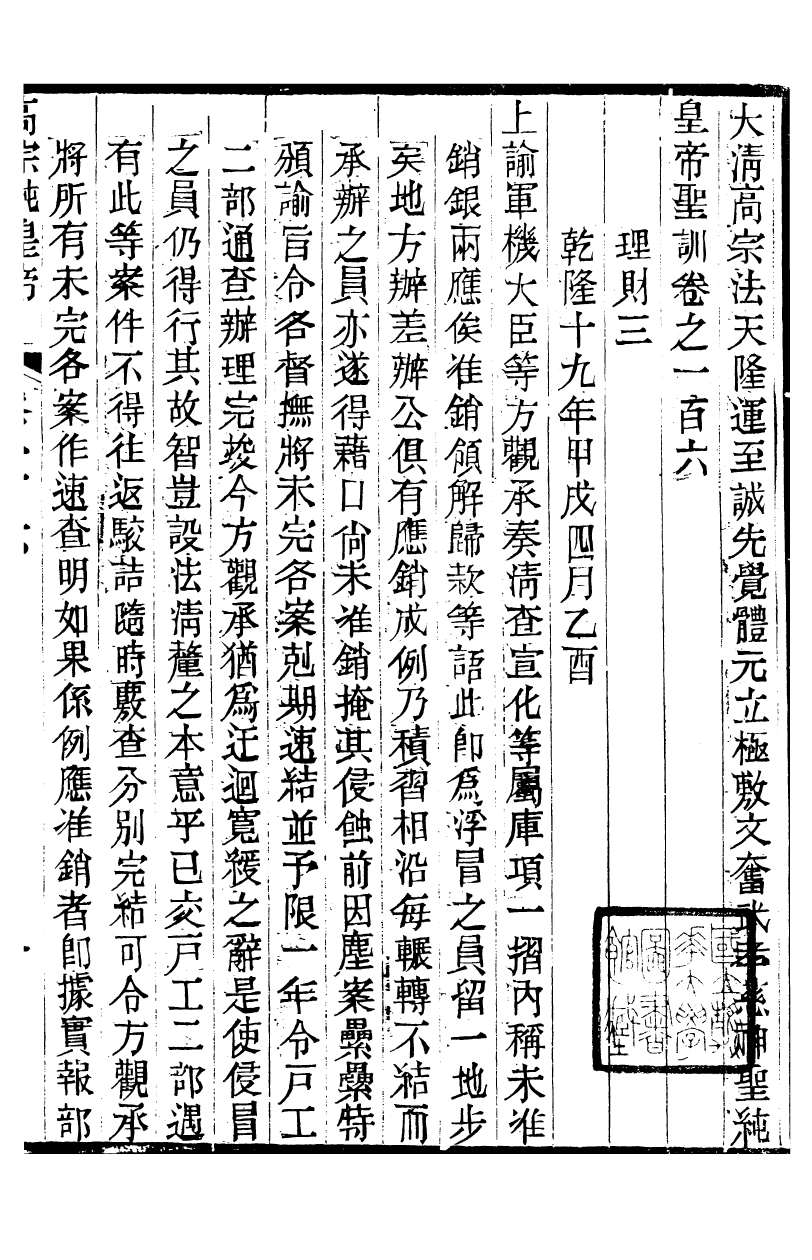 大清高宗法天隆運至誠先覺體元立極敷文奮武孝慈神聖純
皇帝聖訓卷之一百六
理財三
乾隆十九年甲戌四月乙酉
上諭軍機大臣等方觀承奏清查宣化等屬庫項一摺內稱未准
銷銀兩應俟准銷領解歸款等語此卽爲浮冒之員留一地步
矣地方辦差辦公俱有應銷成例乃積習相沿每輾轉不結而
承辦之員亦遂得藉口尙未准銷掩其侵蝕前因塵案纍纍特
頒諭旨令各督撫將未完各案剋期速結並予限一年令戸工
二部通查辦理完竣今方觀承猶爲迂迴寬緩之辭是使侵冒
之員仍得行其故智豈設法清釐之本意乎已交戸工二部遇
有此等案件不得往返駮詰隨時覈查分別完結可令方觀承
將所有未完各案作速查明如果係例應准銷者卽據實報部
高宗純皇帝
國立清華大學圖書館藏